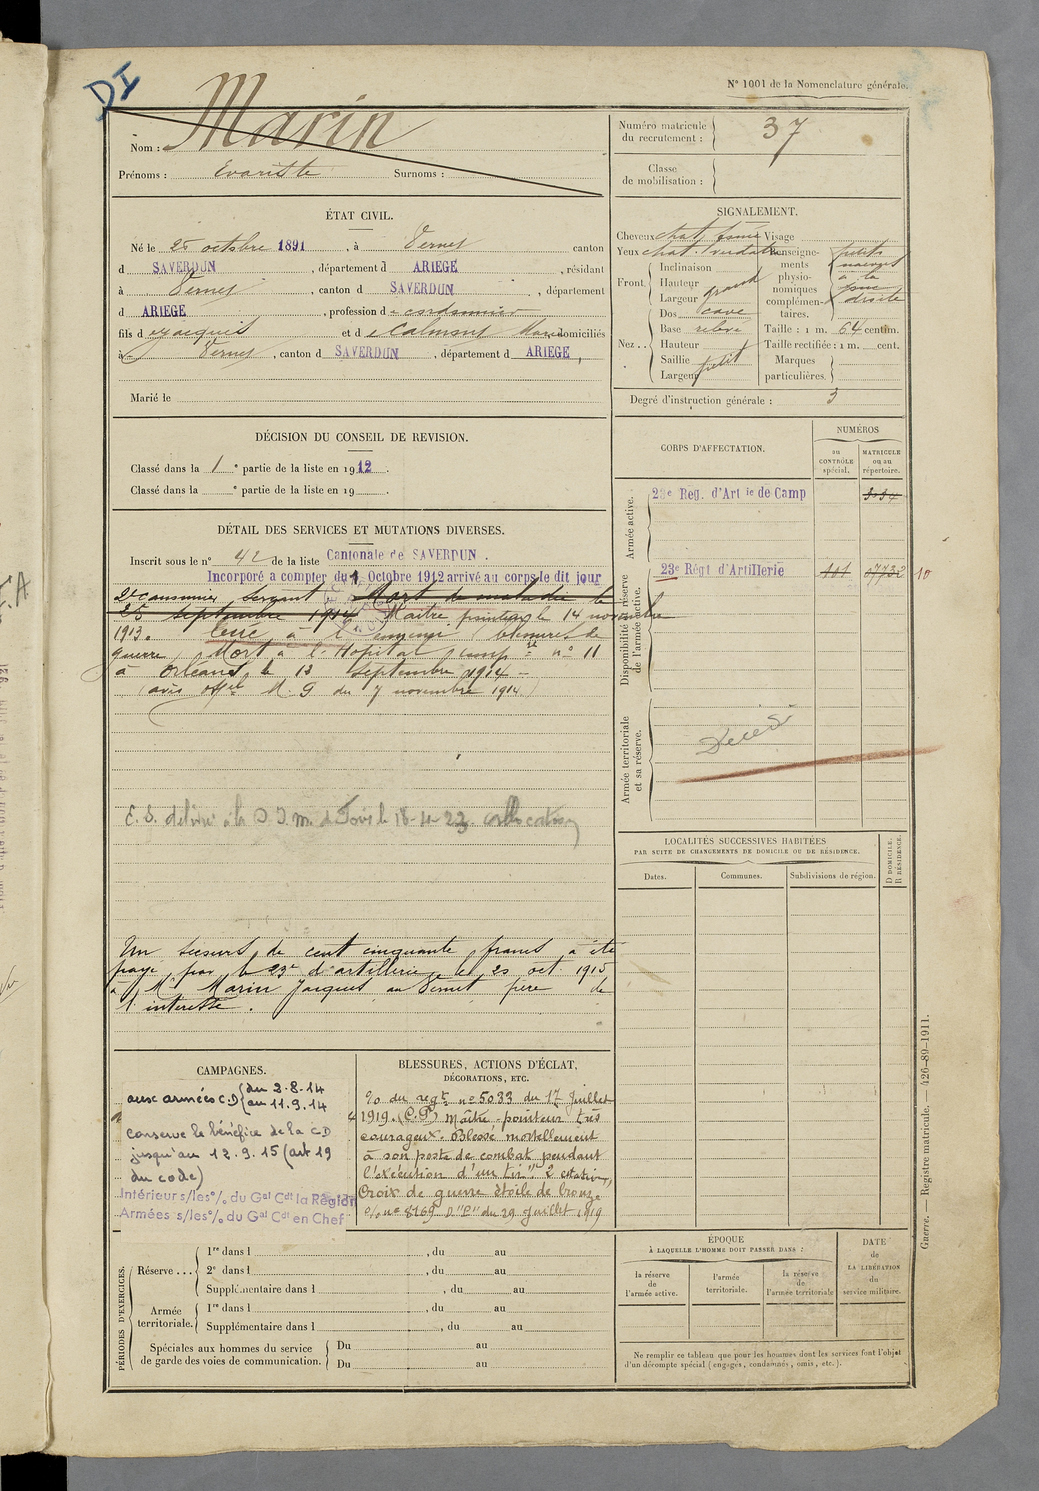 DI
N° 1001 de la Nomenclature générale.
Nom : Marin
Prénoms : Evariste Surnoms :
Numéro matricule du recrutement : 37
Classe de mobilisation :
ÉTAT CIVIL.
Né le 25 octobre 1891, à Vernet canton
d SAVERDUN, département d ARIEGE, résidant
à Vernet, canton d SAVERDUN, département
d ARIEGE, profession d e cordonnier
fils d e Jacques et d e Calmont Marie domiciliés
à Vernet, canton d SAVERDUN, département d ARIEGE,
Marié le
SIGNALEMENT.
Cheveux chat. foncé Visage
Yeux chat. verdatre Renseignements physionomiques complémentaires.
Front. Inclinaison
Hauteur
Largeur grand
à la
droite
Nez.. Dos cave
Base relevé
Hauteur
Saillie
Largeur petit
Taille : 1 m. 64 centim.
Taille rectifiée : 1 m. cent.
Marques particulières.
Degré d'instruction générale : 3
DÉCISION DU CONSEIL DE REVISION.
Classé dans la 1e partie de la liste en 1912.
Classé dans la e partie de la liste en 19 .
DÉTAIL DES SERVICES ET MUTATIONS DIVERSES.
Inscrit sous le n° 42 de la liste Cantonale de SAVERDUN.
Incorporé a compter du 1 Octobre 1912 arrivé au corps le dit jour
2e canonnier servant Mort de maladie le
25 septembre 1914 Maitre pointeur le 14 novembre
1913. à l'ennemi blessures de
guerre Mort à l'Hopital comp re n° 11
à Orléans, le 13 septembre 1914 -
(avis offel M. G du 7 novembre 1914)
E. S. délivré à la D. I. M. de Foix le 18-4-23
Un secours de cent cinquante francs a été
payé par le 23e d'artillerie le 23 oct. 1915
à Mr Marin Jacques au Vernet père de
l'intéressé.
CORPS D'AFFECTATION.
NUMÉROS
au CONTRÔLE spécial.
MATRICULE ou au répertoire.
Armée active.
23e Reg. d'Artie de Camp
Disponibilité et réserve de l'armée active.
23e Régt d'Artillerie 07732 10
Armée territoriale et sa réserve.
Décédé
LOCALITÉS SUCCESSIVES HABITÉES
PAR SUITE DE CHANGEMENTS DE DOMICILE OU DE RÉSIDENCE.
Dates. Communes. Subdivisions de région. D DOMICILE. R RÉSIDENCE.
CAMPAGNES.
aux armées C.D du 2.8.14
au 11.9.14
conserve le bénéfice de la CD
jusqu'au 12.9.15 (art 19
du code)
Intérieur s/les °/. du Gal Cdt la Région
Armées s/les °/. du Gal Cdt en Chef
BLESSURES, ACTIONS D'ÉCLAT,
DÉCORATIONS, ETC.
%o du regt n° 5033 du 17 Juillet
1919. (C.P) Maître-pointeur très
courageux. Blessé mortellement
à son poste de combat pendant
l'exécution d'un tir" 2 citations,
Croix de guerre étoile de bronze
%o n° 8169 D."P." du 29 Juillet 1919
PÉRIODES D'EXERCICES.
Réserve ... 1re dans l , du au
2e dans l , du au
Supplémentaire dans l , du au
Armée territoriale. 1re dans l , du au
Supplémentaire dans l , du au
Spéciales aux hommes du service de garde des voies de communication. Du au
Du au
ÉPOQUE
À LAQUELLE L'HOMME DOIT PASSER DANS :
la réserve de l'armée active.
l'armée territoriale.
la réserve de l'armée territoriale
DATE de LA LIBÉRATION du service militaire.
Ne remplir ce tableau que pour les hommes dont les services font l'objet
d'un décompte spécial (engagés, condamnés, omis, etc.).
Guerre. — Registre matricule. — 426-89-1911.